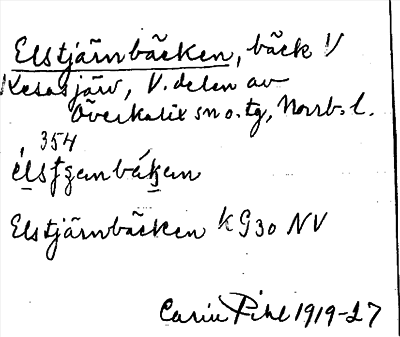 Elstjärnbäcken, bäck V
Kesasjärv, V. delen av
Överkalix sn o. tg, Norrb. l.
354
Elstjärnbäcken KG30 NV
Carin Pihl 1919-27